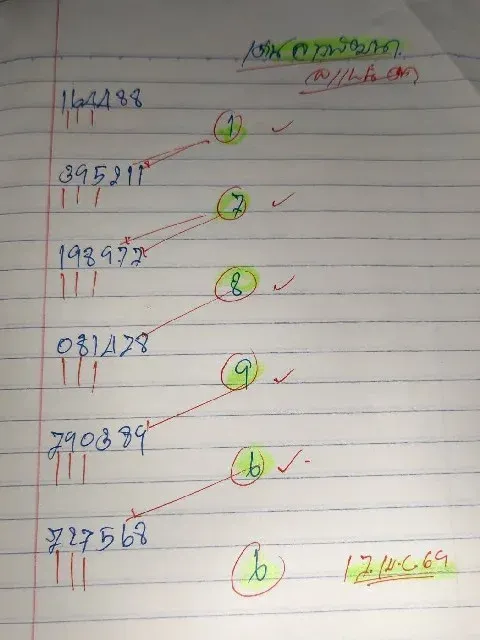 164488
1
395211
7
198977
8
081478
9
790389
6
727568
6
17 ม.ค 69